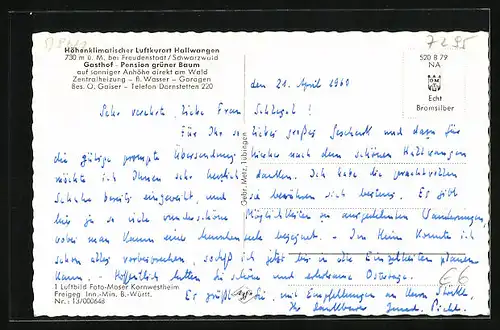 Höhenklimatischer Luftkurort Hallwangen
730 m ü. M. bei Freudenstadt / Schwarzwald
Gasthof - Pension grüner Baum
auf sonniger Anhöhe direkt am Wald
Zentralheizung - fl. Wasser - Garagen
Bes. O. Gaiser - Telefon Dornstetten 220
7295
520 B 79
NA
Echt
Bromsilber
den 21. April 1960
Sehr verehrte, liebe Frau Schlegel!
Für Ihr so liebes großes Geschenk und dazu für
die gütige prompte Übersendung hierher nach dem schönen Hallwangen
möchte ich Ihnen sehr herzlich danken. Ich habe die prachtvollen
Schuhe bereits eingeweiht, und sie bewähren sich bestens. Es gibt
hier ja so viele wunderschöne Möglichkeiten zu ausgedehnten Wanderungen,
wobei man kaum einer Menschenseele begegnet. - Im Heim konnte ich
schon alles vorbesprechen, sodaß ich jetzt bis in alle Einzelheiten planen
kann. - Hoffentlich hatten Sie schöne und erholsame Ostertage.
Es grüßt Sie, mit Empfehlungen an Herrn
Ihr dankbarer
Gebr. Metz, Tübingen
Agfa
1 Luftbild Foto-Moser Kornwestheim
Freigeg. Inn.-Min. B.-Württ.
Nr.: 13/000646
€6